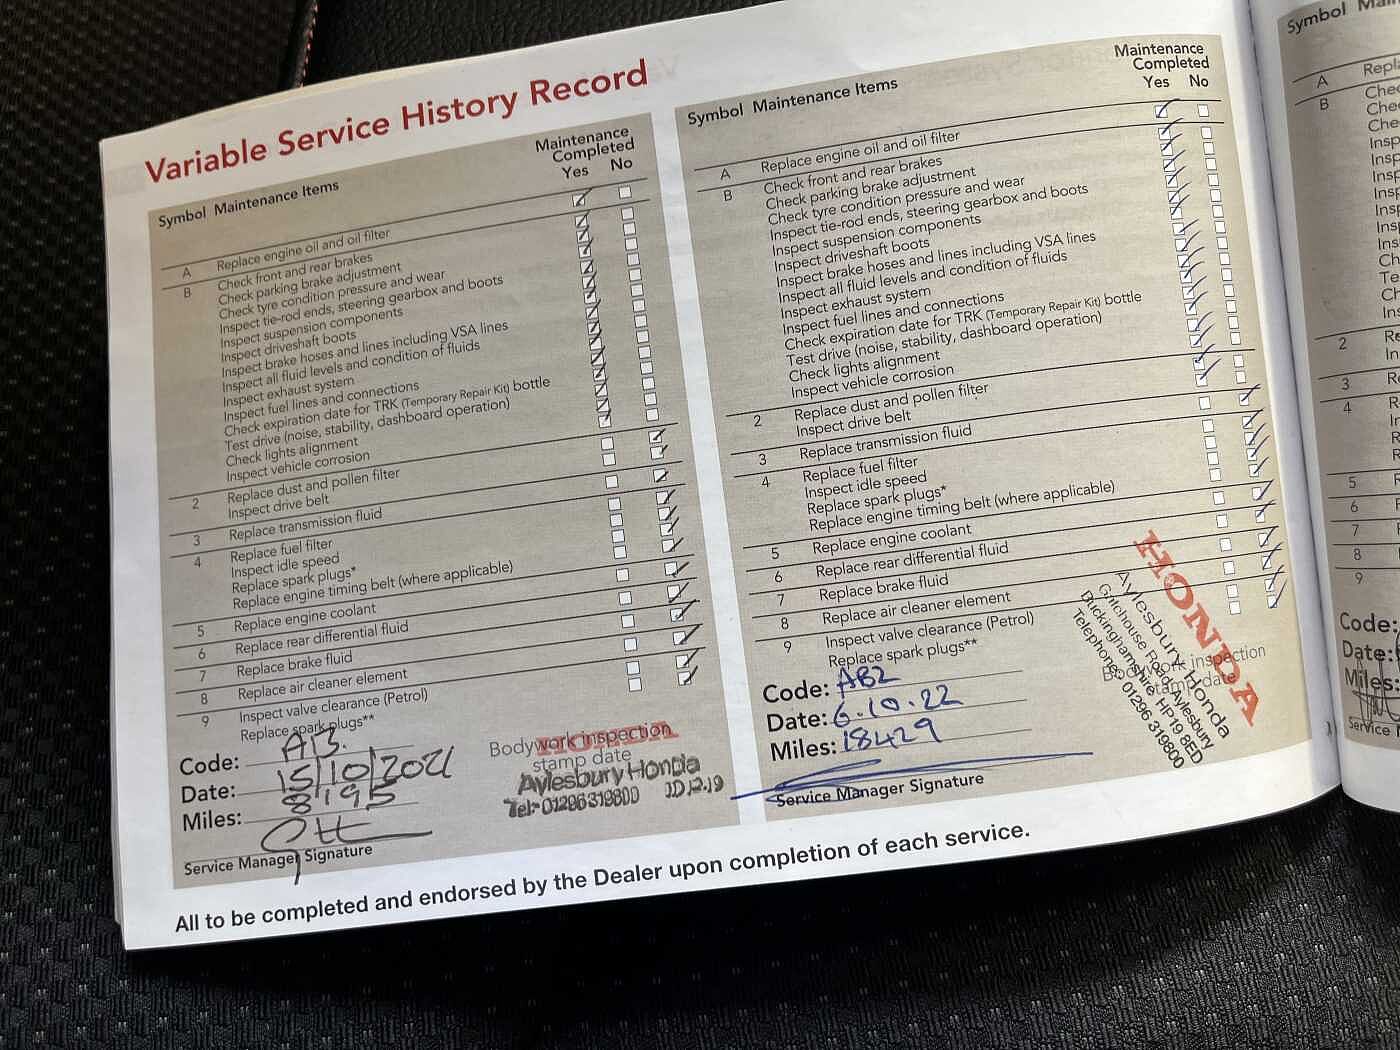 Variable Service History Record
Symbol Maintenance Items
Maintenance
Completed
Yes No
A Replace engine oil and oil filter
B Check front and rear brakes
Check parking brake adjustment
Check tyre condition pressure and wear
Inspect tie-rod ends, steering gearbox and boots
Inspect suspension components
Inspect driveshaft boots
Inspect brake hoses and lines including VSA lines
Inspect all fluid levels and condition of fluids
Inspect exhaust system
Inspect fuel lines and connections
Check expiration date for TRK (Temporary Repair Kit) bottle
Test drive (noise, stability, dashboard operation)
Check lights alignment
Inspect vehicle corrosion
2 Replace dust and pollen filter
Inspect drive belt
3 Replace transmission fluid
4 Replace fuel filter
Inspect idle speed
Replace spark plugs*
Replace engine timing belt (where applicable)
5 Replace engine coolant
6 Replace rear differential fluid
7 Replace brake fluid
8 Replace air cleaner element
9 Inspect valve clearance (Petrol)
Replace spark plugs**
Code: AB.
Date: 15/10/2021
Miles: 8195
Service Manager Signature
Bodywork inspection
stamp date
HONDA
Aylesbury Honda
Tel:- 01296 319800
Symbol Maintenance Items
Maintenance
Completed
Yes No
A Replace engine oil and oil filter
B Check front and rear brakes
Check parking brake adjustment
Check tyre condition pressure and wear
Inspect tie-rod ends, steering gearbox and boots
Inspect suspension components
Inspect driveshaft boots
Inspect brake hoses and lines including VSA lines
Inspect all fluid levels and condition of fluids
Inspect exhaust system
Inspect fuel lines and connections
Check expiration date for TRK (Temporary Repair Kit) bottle
Test drive (noise, stability, dashboard operation)
Check lights alignment
Inspect vehicle corrosion
2 Replace dust and pollen filter
Inspect drive belt
3 Replace transmission fluid
4 Replace fuel filter
Inspect idle speed
Replace spark plugs*
Replace engine timing belt (where applicable)
5 Replace engine coolant
6 Replace rear differential fluid
7 Replace brake fluid
8 Replace air cleaner element
9 Inspect valve clearance (Petrol)
Replace spark plugs**
Code: AB2
Date: 6.10.22
Miles: 18429
Service Manager Signature
Bodywork inspection
stamp date
HONDA
Aylesbury Honda
Gatehouse Road, Aylesbury
Buckinghamshire, HP19 8ED
Telephone: 01296 319800
All to be completed and endorsed by the Dealer upon completion of each service.
Symbol
A
B
2
3
4
5
6
7
8
9
Code:
Date:
Miles:
Service